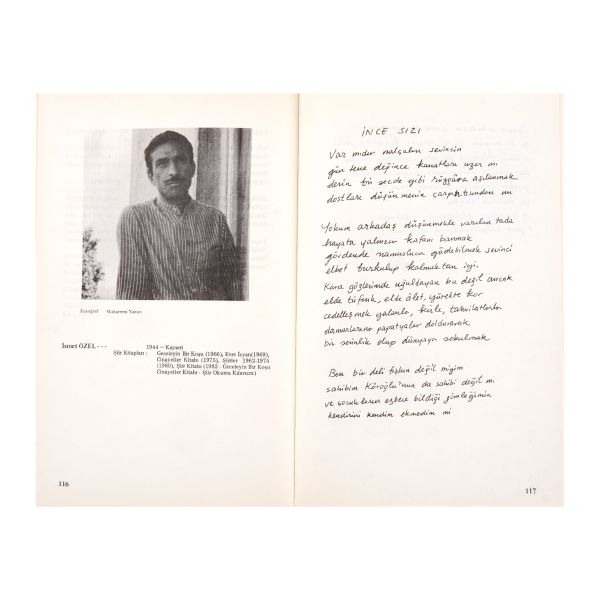 Fotoğraf Muharrem Yazıcı
İsmet ÖZEL - - -
1944 — Kayseri
Şiir Kitapları : Geceleyin Bir Koşu (1966), Evet İsyan(1969),
Cinayetler Kitabı (1975), Şiirler 1962-1974
(1980), Şiir Kitabı (1982 - Geceleyin Bir Koşu
Cinayetler Kitabı - Şiir Okuma Kılavuzu)
116
İNCE SIZI
Var mıdır nalçaların sevincin
gün tene değince kanatları uzar mı
derin bir secde gibi rüzgâra aşılanmak
dostları düşünmenin çarpıntısından mı
Yokum arkadaş düşünmekle varılan tada
hayata yalnızca kafanı banmak
gövdende namusluca güdebilmek sevinci
elbet burkulup kalmaktan iyi.
Kara gözlerimde uğultuyan bu değil ancak
elde tüfenk, elde âlet, yürekte kor
cedelleşmek yalanla, kirle, tahvilatlarla
damarlarını papatyalar doldurarak
bir serinlik olup dünyaya sokulmak
Ben bir deli fişkın değil miyim
sahibim Köroğlu'nun da sahibi değil mi
ve çocukların ezbere bildiği gömleğimin
kendirini kendim ekmedim mi
117